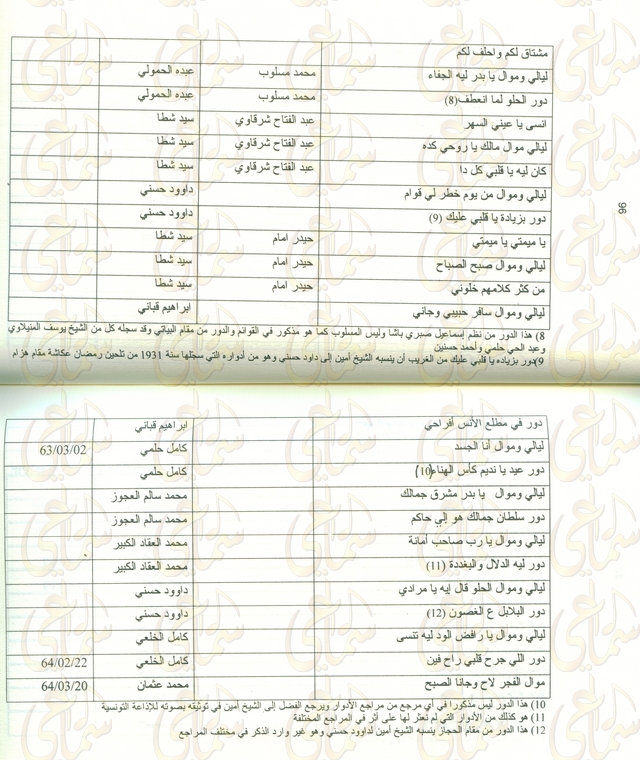 مشتاق لكم واحلف لكم
ليالي وموال يا بدر ليه الجفاء محمد مسلوب عبده الحمولي
دور الحلو لما انعطف(8) محمد مسلوب عبده الحمولي
انسى يا عيني السهر عبد الفتاح شرقاوي سيد شطا
ليالي موال مالك يا روحي كده عبد الفتاح شرقاوي سيد شطا
كان ليه يا قلبي كل دا عبد الفتاح شرقاوي سيد شطا
ليالي وموال من يوم خطر لي قوام داوود حسني
دور بزيادة يا قلبي عليك (9) داوود حسني
يا ميمتي يا ميمتي حيدر امام سيد شطا
ليالي وموال صبح الصباح حيدر امام سيد شطا
من كثر كلامهم خلوني حيدر امام سيد شطا
ليالي وموال سافر حبيبي وجاني ابراهيم قباني
8) هذا الدور من نظم إسماعيل صبري باشا وليس المسلوب كما هو مذكور في القوائم والدور من مقام البياتي وقد سجله كل من الشيخ يوسف المنيلاوي
وعبد الحي حلمي وأحمد حسنين
9)دور بزياده يا قلبي عليك من الغريب أن ينسبه الشيخ أمين إلى داود حسني وهو من أدواره التي سجلها سنة 1931 من تلحين رمضان عكاشة مقام هزام
96
دور في مطلع الأنس أفراحي ابراهيم قباني
ليالي وموال أنا الجسد كامل حلمي 63/03/02
دور عيد يا نديم كأس الهناء(10) كامل حلمي
ليالي وموال يا بدر مشرق جمالك محمد سالم العجوز
دور سلطان جمالك هو إلي حاكم محمد سالم العجوز
ليالي وموال يا رب صاحب أمانة محمد العقاد الكبير
دور ليه الدلال والبغددة (11) محمد العقاد الكبير
ليالي وموال الحلو قال إيه يا مرادي داوود حسني
دور البلابل ع الغصون (12) داوود حسني
ليالي وموال يا رافض الود ليه تنسى كامل الخلعي
دور اللي جرح قلبي راح فين كامل الخلعي 64/02/22
موال الفجر لاح وجانا الصبح محمد عثمان 64/03/20
10) هذا الدور ليس مذكورا في أي مرجع من مراجع الأدوار ويرجع الفضل إلى الشيخ أمين في توثيقه بصوته للإذاعة التونسية
11) هو كذلك من الأدوار التي لم نعثر لها على أثر في المراجع المختلفة
12) هذا الدور من مقام الحجاز ينسبه الشيخ أمين لداوود حسني وهو غير وارد الذكر في مختلف المراجع